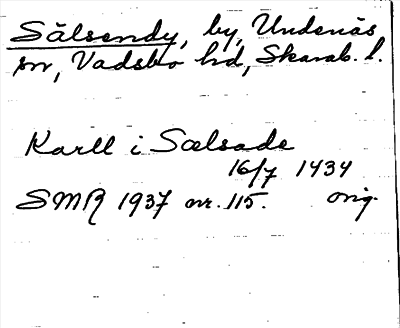 Sälsendy, by, Undenäs
sn, Vadsbo hd, Skarab. l.
Karll i Sælsade
16/7 1434
SMR 1937 nr. 115. orig.